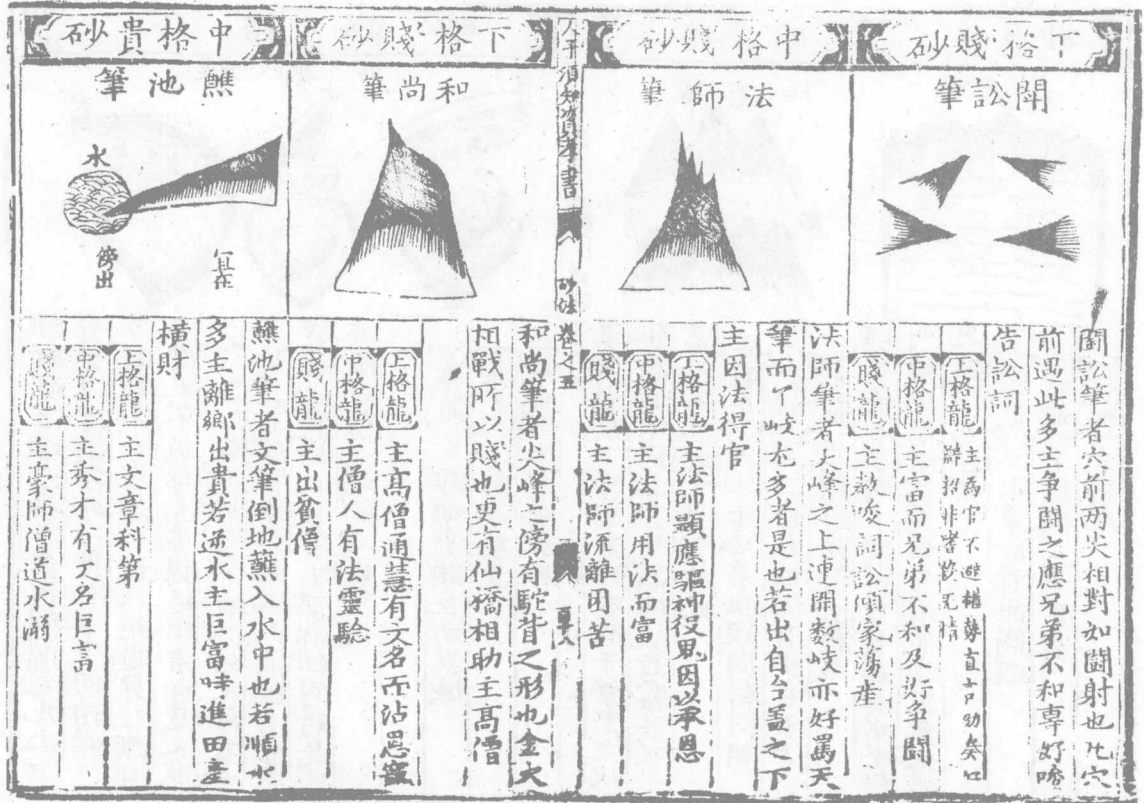 下格賤砂
鬪訟筆
鬪訟筆者穴前两尖相對如鬪射也凢穴
前遇此多主爭鬪之應兄弟不和專好唆
告訟詞
上格龍
主為官不避權勢直言劾奏
中格龍
主富而兄弟不和及好爭鬪
賤龍
主教唆詞訟傾家蕩産
中格賤砂
法師筆
法師筆者尖峰之上連開數岐而
筆而了岐尤多者是也若出自台盖之下
主因法得官
上格龍
主法師顯應驅神役鬼因以承恩
中格龍
主法師用法而富
賤龍
主法師流離困苦
人子須知資孝書
砂法
卷之五
下格賤砂
和尚筆
和尚筆者尖峰之傍有駝背之形也金火
相戰所以賤也更有仙橋相助主高僧
上格龍
主髙僧通慧有文名而沾恩寵
中格龍
主僧人有法靈驗
賤龍
主出貧僧
中格貴砂
蘸池筆
水
傍出
蘸池筆者文筆倒地蘸入水中也若順水
多主離鄉出貴若逆水主巨富時進田產
橫財
上格龍
主文章科第
中格龍
主秀才有大名巨富
賤龍
主豪師僧道水溺